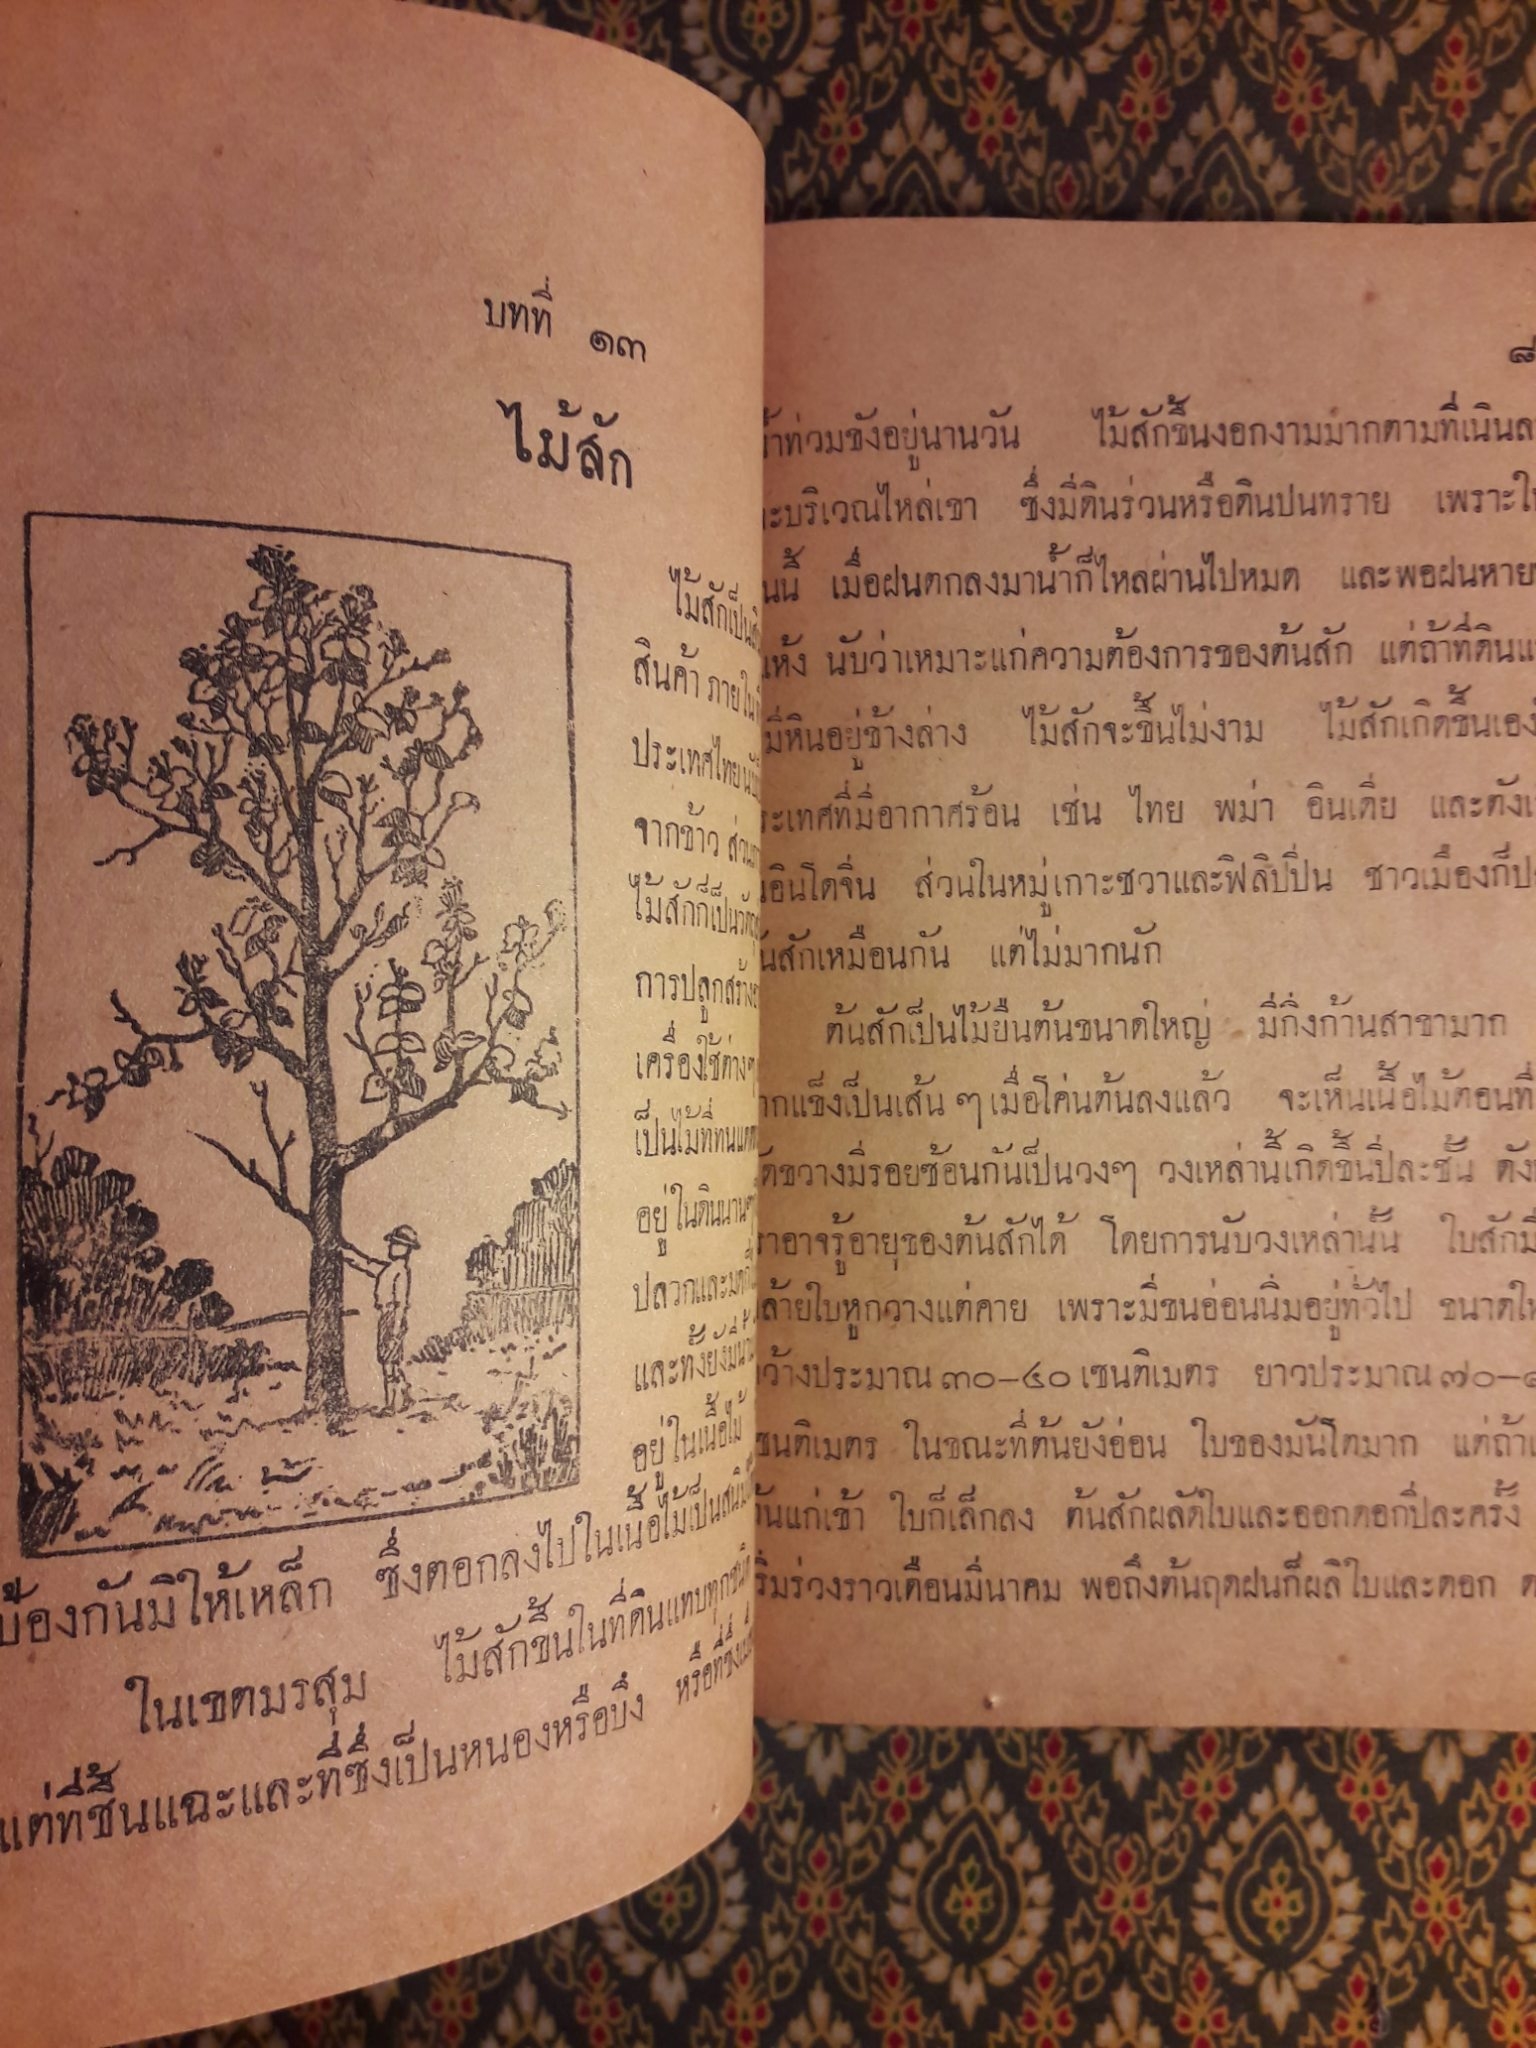 บทที่ ๑๓
ไม้สัก
ไม้สักเป็น
สินค้า ภายใน
ประเทศไทย
จากข้าว
ไม้สักก็เป็น
การปลูกสร้าง
เครื่องใช้ต่างๆ
เป็นไม้ที่ทน
อยู่ในดินนานๆ
ปลวกและ
และทั้งยังมี
อยู่ในเนื้อไม้
ป้องกันมิให้เหล็ก ซึ่งตอกลงไปในเนื้อไม้เป็นสนิม
ในเขตมรสุม ไม้สักขึ้นในที่ดินแทบทุกชนิด
แต่ที่ชื้นแฉะและที่ซึ่งเป็นหนองหรือบึง หรือที่ซึ่ง
๘
ท่วมขังอยู่นานวัน ไม้สักขึ้นงอกงามมากตามที่เนิน
บริเวณไหล่เขา ซึ่งมีดินร่วนหรือดินปนทราย เพราะ
เมื่อฝนตกลงมาน้ำก็ไหลผ่านไปหมด และพอฝนหาย
นับว่าเหมาะแก่ความต้องการของต้นสัก แต่ถ้าที่ดิน
มีหินอยู่ข้างล่าง ไม้สักจะขึ้นไม่งาม ไม้สักเกิดขึ้นเอง
ประเทศที่มีอากาศร้อน เช่น ไทย พม่า อินเดีย และ
อินโดจีน ส่วนในหมู่เกาะชวาและฟิลิปปิน ชาวเมืองก็
ต้นสักเหมือนกัน แต่ไม่มากนัก
ต้นสักเป็นไม้ยืนต้นขนาดใหญ่ มีกิ่งก้านสาขามาก
แข็งเป็นเส้น ๆ เมื่อโค่นต้นลงแล้ว จะเห็นเนื้อไม้ตอนที่
ขวางมีรอยซ้อนกันเป็นวงๆ วงเหล่านี้เกิดขึ้นปีละชั้น
อาจรู้อายุของต้นสักได้ โดยการนับวงเหล่านั้น ใบสักมี
ใบหูกวางแต่คาย เพราะมีขนอ่อนนิ่มอยู่ทั่วไป ขนาด
กว้างประมาณ ๓๐–๔๐ เซนติเมตร ยาวประมาณ ๗๐–
เซนติเมตร ในขณะที่ต้นยังอ่อน ใบของมันโตมาก แต่ถ้า
ต้นแก่เข้า ใบก็เล็กลง ต้นสักผลัดใบและออกดอกปีละครั้ง
เริ่มร่วงราวเดือนมีนาคม พอถึงต้นฤดูฝนก็ผลิใบและดอก